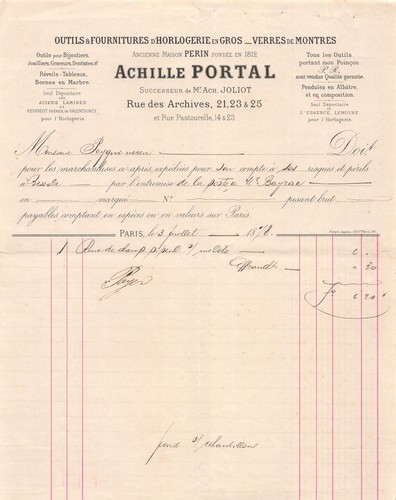 OUTILS & FOURNITURES D'HORLOGERIE EN GROS VERRES DE MONTRES
Outils pour Bijoutiers,
Joailliers, Graveurs, Dentistes, &c
Réveils-Tableaux,
Bornes en Marbre.
Seul Dépositaire
des
ACIERS LAMINÉS
DE
PEUGEOT FRÈRES DE VALENTIGNEY
pour l'Horlogerie
ANCIENNE MAISON PERIN FONDÉE EN 1812
ACHILLE PORTAL
SUCCESSEUR DE Mr. ACH. JOLIOT
Rue des Archives, 21, 23 & 25
et Rue Pastourelle, 14 & 23
Tous les Outils
portant mon Poinçon
P. R.
sont vendus Qualité garantie.
Pendules en Albâtre,
et en composition.
Seul Dépositaire
de
L'ESSENCE LEMOINE
pour l'Horlogerie.
Monsieur Doit
pour les marchandises ci-après, expédiées pour son compte à ses risques et périls
à par l'entremise de la poste
en marqué No pesant brut
payables comptant en espèces ou en valeurs sur Paris.
PARIS, le 3 juillet 1878.
1 Roue de champ s/ 6 "
Affranchi " 20
Payé
fr 6 20
s/ échantillon